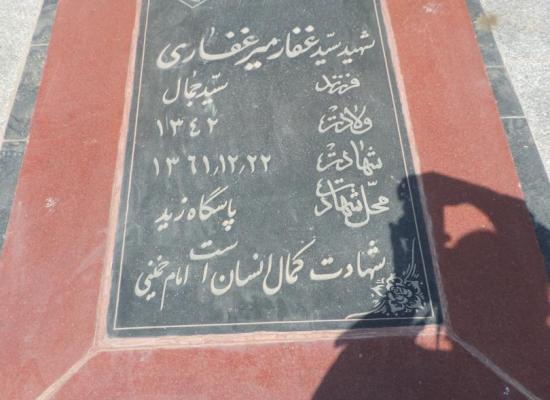 شهید سیّد غفار میرغفاری
فرزند سیّد جمال
ولادت ۱۳۴۲
شهادت ۱۳۶۱٫۱۲٫۲۲
محلّ شهادت پاسگاه زید
شهادت کمال انسان است امام خمینی